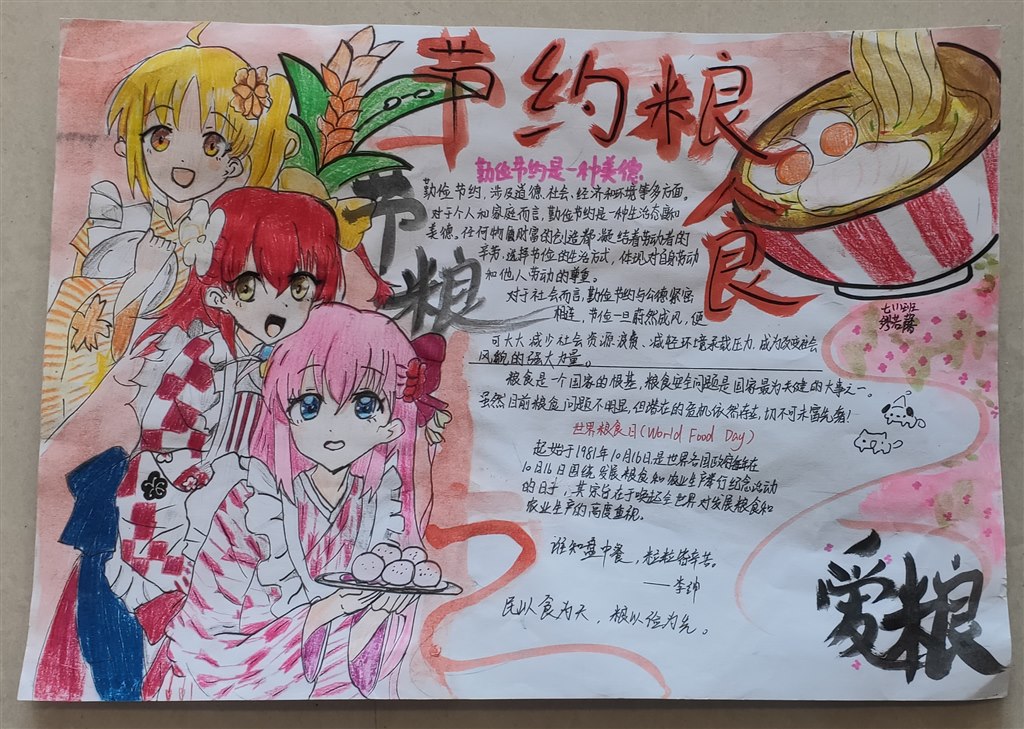 节约粮食
节粮
勤俭节约是一种美德
勤俭节约，涉及道德、社会、经济和环境等多方面。
对于个人和家庭而言，勤俭节约是一种生活态度和
美德。任何物质财富的创造都凝结着劳动者的
辛劳。选择节俭的生活方式，体现对自身劳动
和他人劳动的尊重。
对于社会而言，勤俭节约与公德紧密
相连，节俭一旦蔚然成风，便
可大大减少社会资源浪费、减轻环境承载压力，成为改变社会
风貌的强大力量。
粮食是一个国家的根基，粮食安全问题是国家最为关键的大事之一。
虽然目前粮食问题不明显，但潜在的危机依然存在，切不可未富先奢！
世界粮食日(World Food Day)
起始于1981年10月16日，是世界各国政府每年在
10月16日围绕发展粮食和农业生产举行纪念活动
的日子，其宗旨在于唤起全世界对发展粮食和
农业生产的高度重视。
谁知盘中餐，粒粒皆辛苦。
——李绅
民以食为天，粮以俭为先。
七11班
爱粮